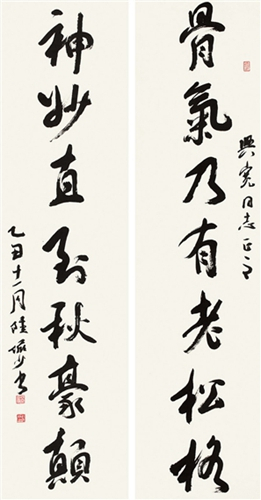 骨氣乃有老松格
興寬同志正之
神妙直到秋豪顛
乙丑十一月陸儼少书